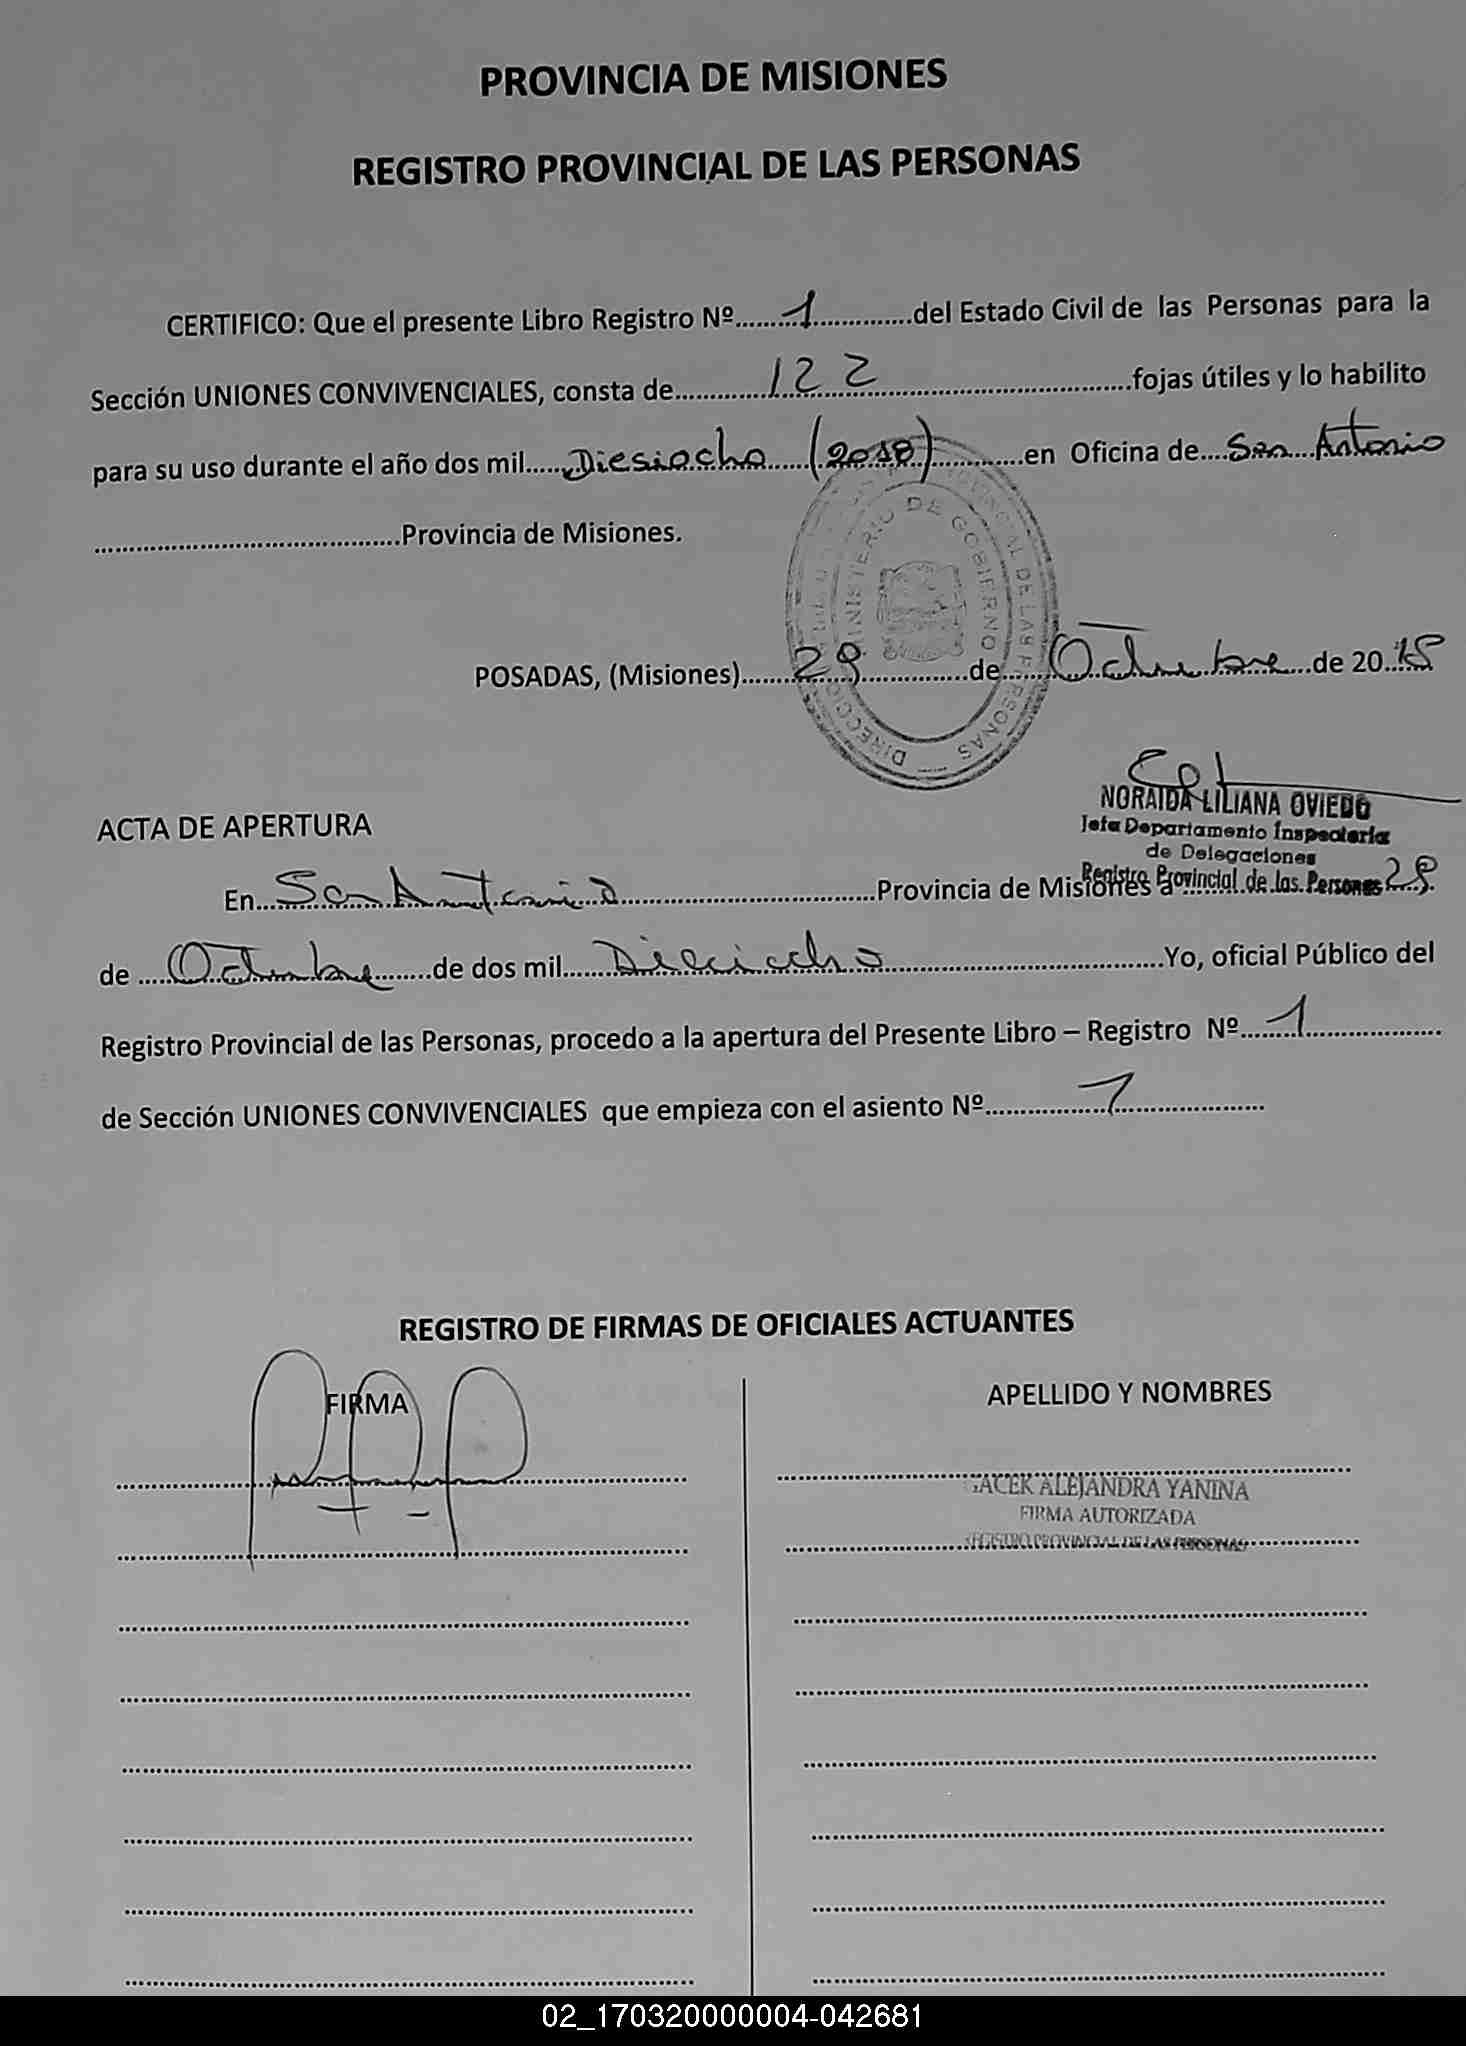 PROVINCIA DE MISIONES
REGISTRO PROVINCIAL DE LAS PERSONAS
CERTIFICO: Que el presente Libro Registro Nº 1 del Estado Civil de las Personas para la
Sección UNIONES CONVIVENCIALES, consta de 122 fojas útiles y lo habilito
para su uso durante el año dos mil Diesiocho (2018) en Oficina de San Antonio
Provincia de Misiones.
MINISTERIO DE GOBIERNO
PROVINCIAL DE LAS PERSONAS
POSADAS, (Misiones) 29 de Octubre de 2018
NORAIDA LILIANA OVIEDO
Jefa Departamento Inspectoria
de Delegaciones
Registro Provincial de las Personas
ACTA DE APERTURA
En San Antonio Provincia de Misiones a 29
de Octubre de dos mil Dieciocho Yo, oficial Público del
Registro Provincial de las Personas, procedo a la apertura del Presente Libro – Registro Nº 1
de Sección UNIONES CONVIVENCIALES que empieza con el asiento Nº 1
REGISTRO DE FIRMAS DE OFICIALES ACTUANTES
FIRMA
APELLIDO Y NOMBRES
ALEJANDRA YANINA
FIRMA AUTORIZADA
REGISTRO PROVINCIAL DE LAS PERSONAS
02_170320000004-042681